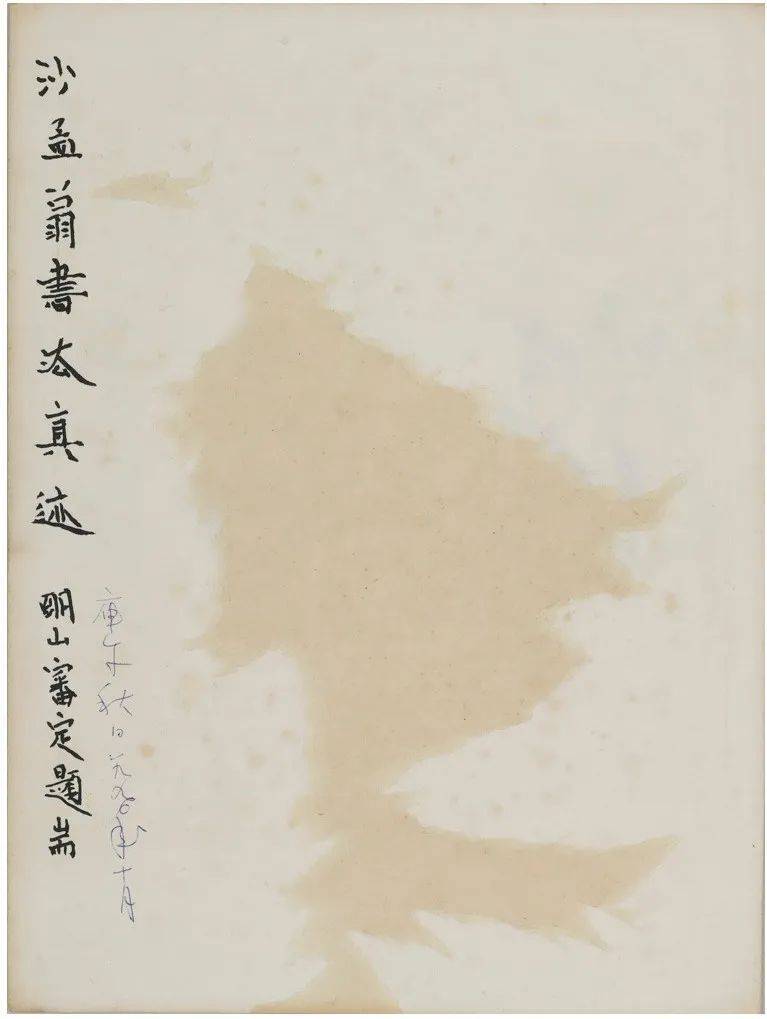 沙孟翁書法真迹
明山審定題耑
庚午秋日一九九〇年十月